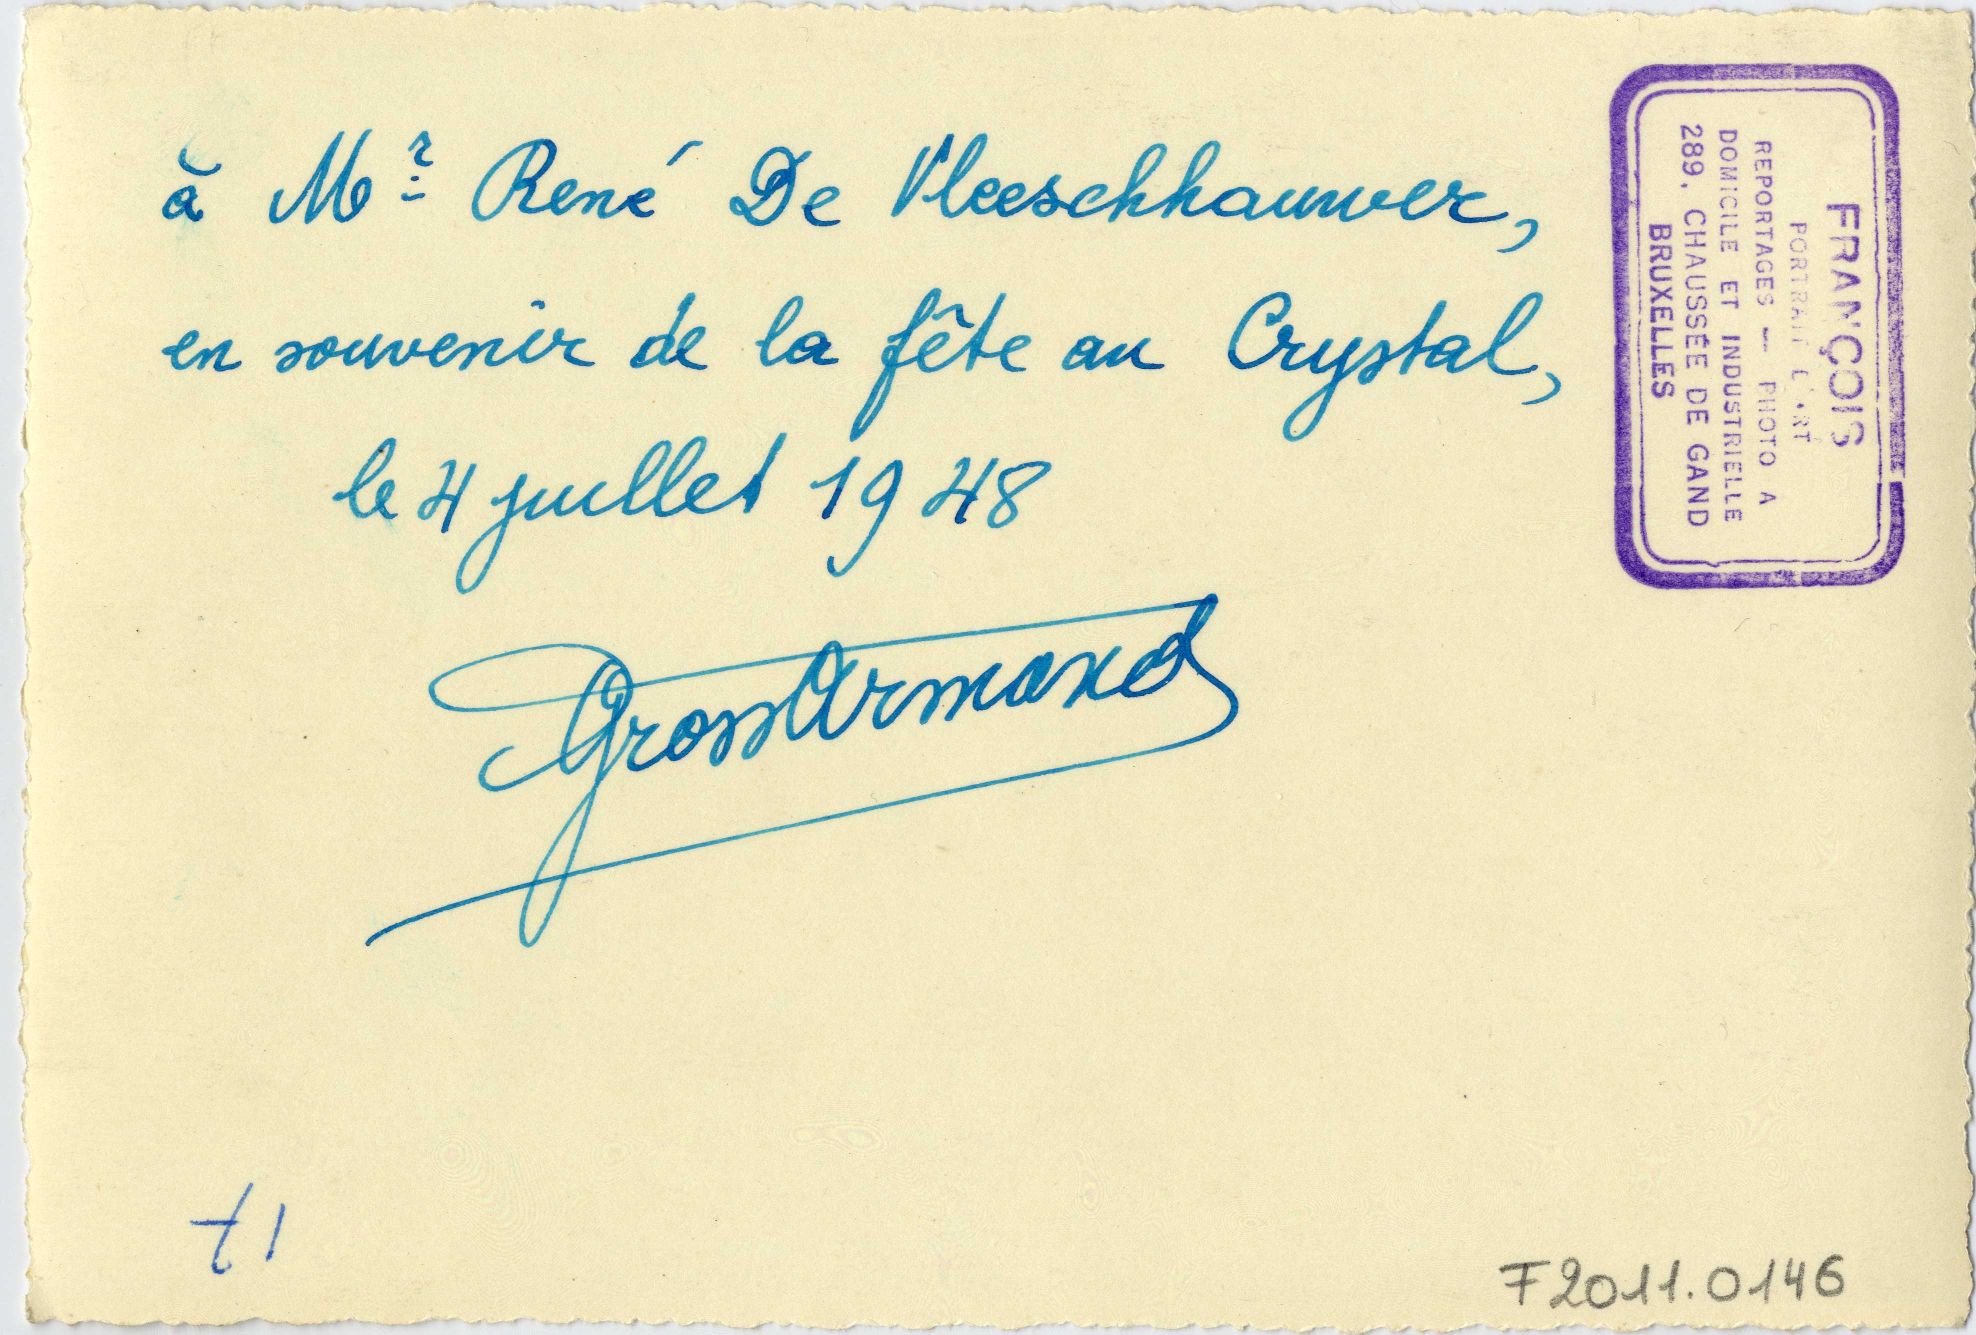 à Mr René De Vleeschhauwer,
en souvenir de la fête au Crystal,
le 4 juillet 1948
GrossArmand
FRANÇOIS
PORTRAIT D'ART
REPORTAGES — PHOTO A
DOMICILE ET INDUSTRIELLE
289, CHAUSSÉE DE GAND
BRUXELLES
F2011.0146